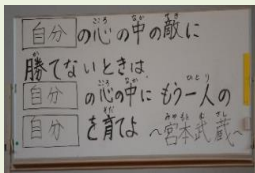 自分の心の中の敵に
勝てないときは、
自分の心の中にもう一人の
自分を育てよ ～宮本武蔵～